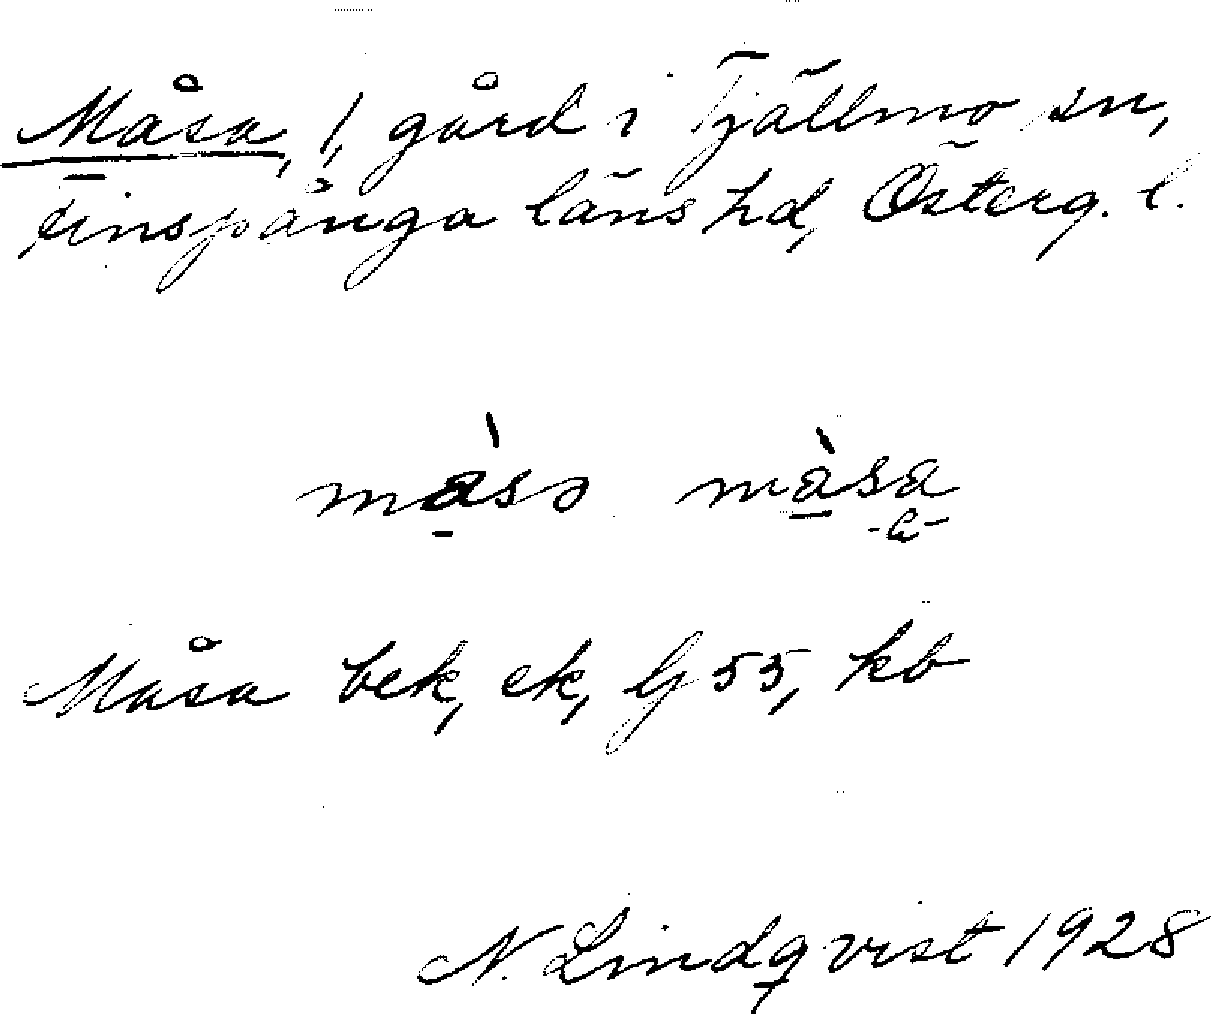 Måsa, 1, gård i Tjällmo sn,
Finspånga läns hd, Österg. l.
måsa
Måsa bek, ek, G 55, kb
N. Lindqvist 1928